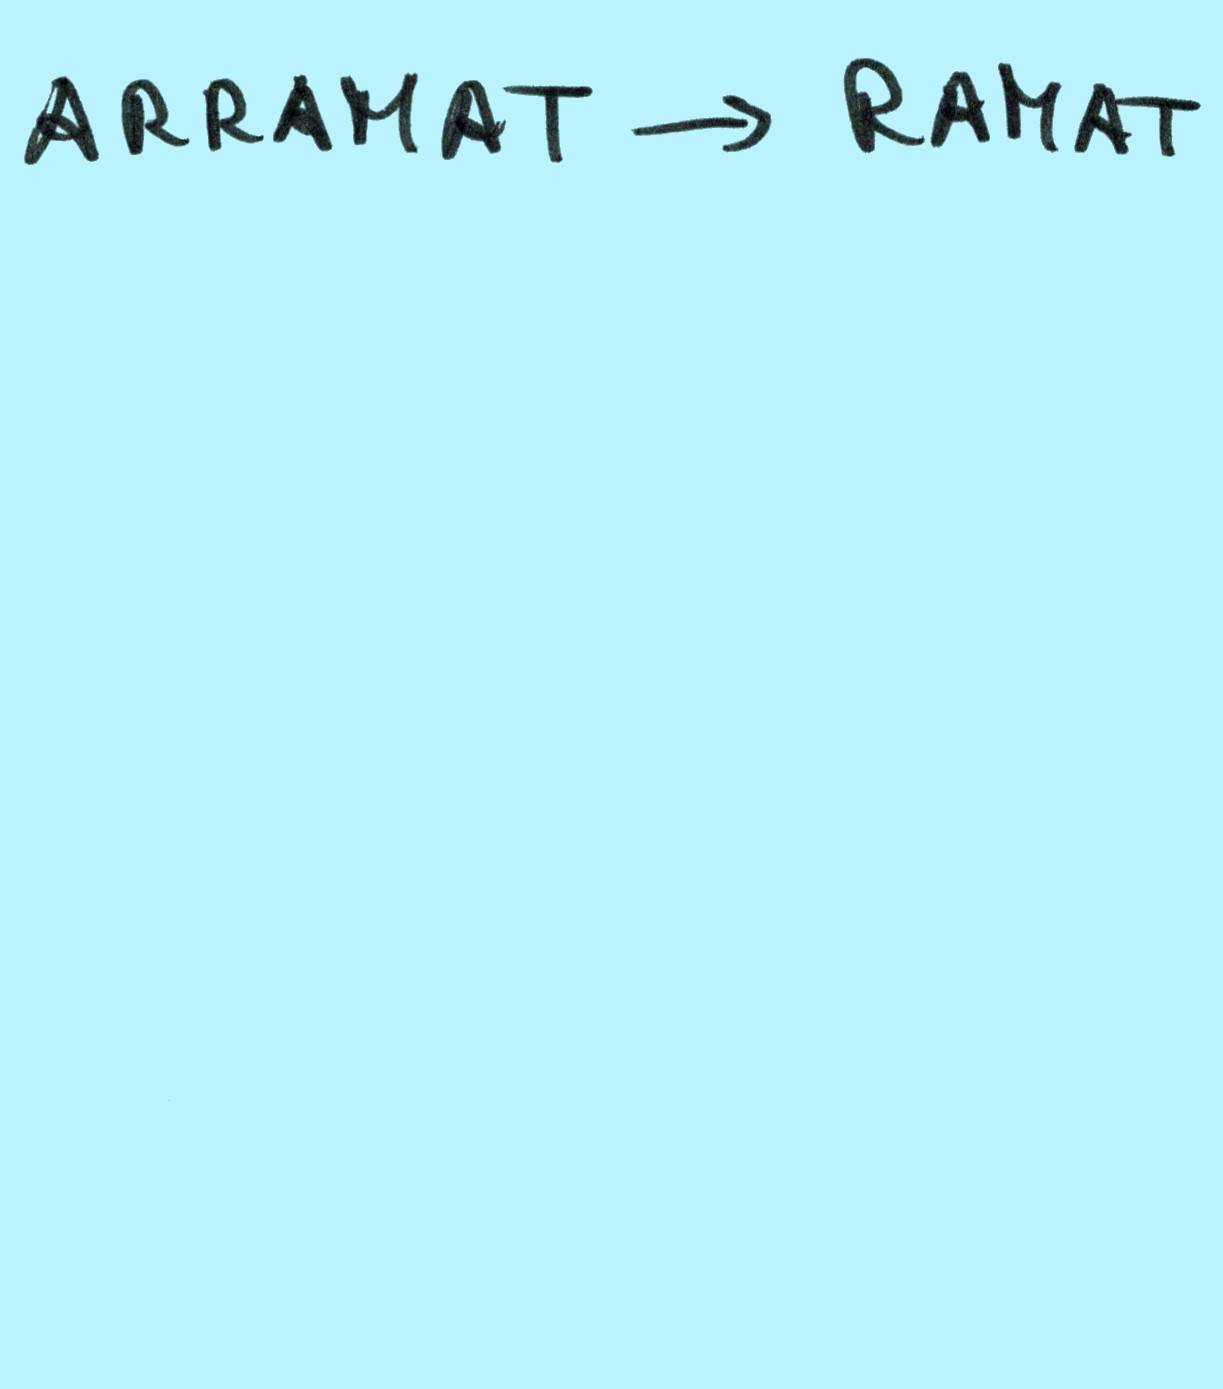 ARRAMAT → RAMAT